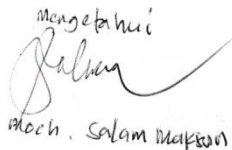 Mengetahui
Moch. Salam Maksun